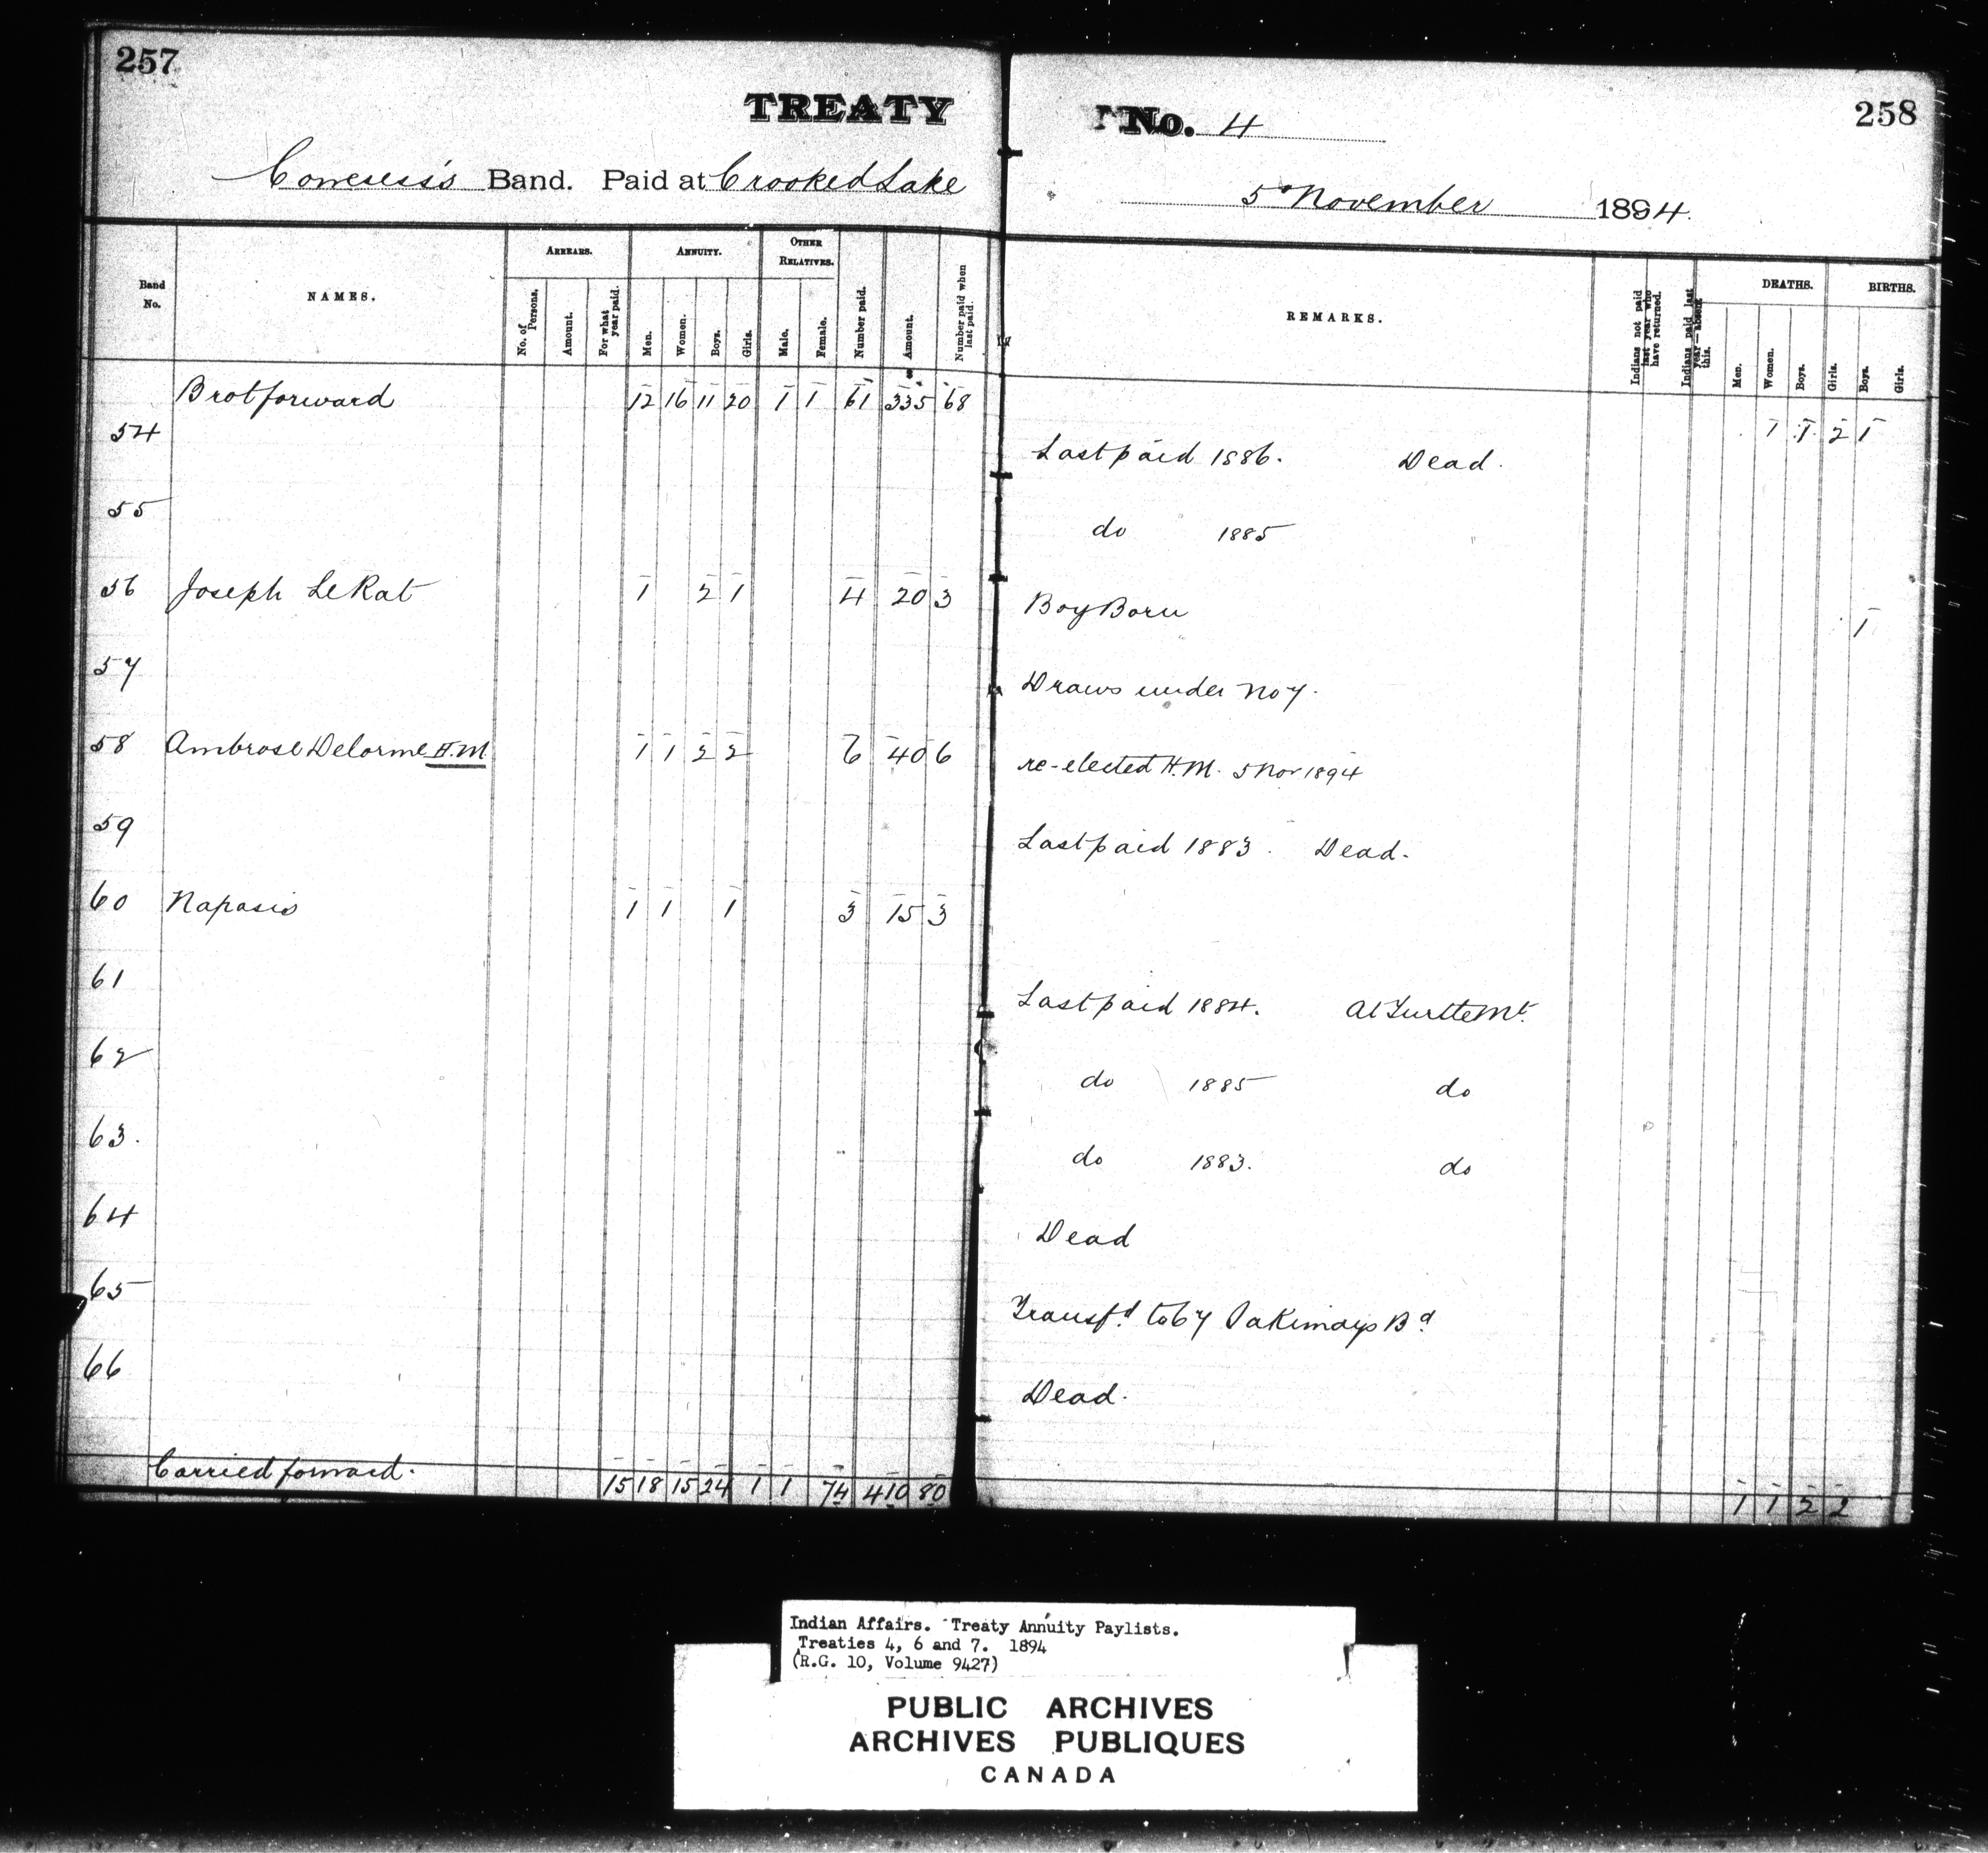 257
258
TREATY No. 4
Cowesess's Band. Paid at Crooked Lake
5 November 1894.
Band No.
NAMES.
ARREARS.
No. of Persons.
Amount.
For what year paid.
ANNUITY.
Men.
Women.
Boys.
Girls.
OTHER RELATIVES.
Male.
Female.
Number paid.
Amount.
Number paid when last paid.
REMARKS.
Indians not paid last year who have returned.
Indians paid last year—absent this.
DEATHS.
Men.
Women.
Boys.
Girls.
BIRTHS.
Boys.
Girls.
Brot forward 12 16 11 20 1 1 61 335 68 1 1 2 1
54 Last paid 1886. Dead.
55 do 1885
56 Joseph LeRat 1 2 1 4 20 3 Boy Born 1
57 Draws under No 7.
58 Ambrose Delorme H.M. 1 1 2 2 6 40 6 re-elected H.M. 5 Nov 1894
59 Last paid 1883. Dead.
60 Napasis 1 1 1 3 15 3
61 Last paid 1884. At Turtle Mt.
62 do 1885 do
63. do 1883. do
64 Dead
65 Transfd. to 67 Sakimays Bd
66 Dead.
Carried forward. 15 18 15 24 1 1 74 410 80 1 1 2 2
Indian Affairs. Treaty Annuity Paylists.
Treaties 4, 6 and 7. 1894
(R.G. 10, Volume 9427)
PUBLIC ARCHIVES
ARCHIVES PUBLIQUES
CANADA